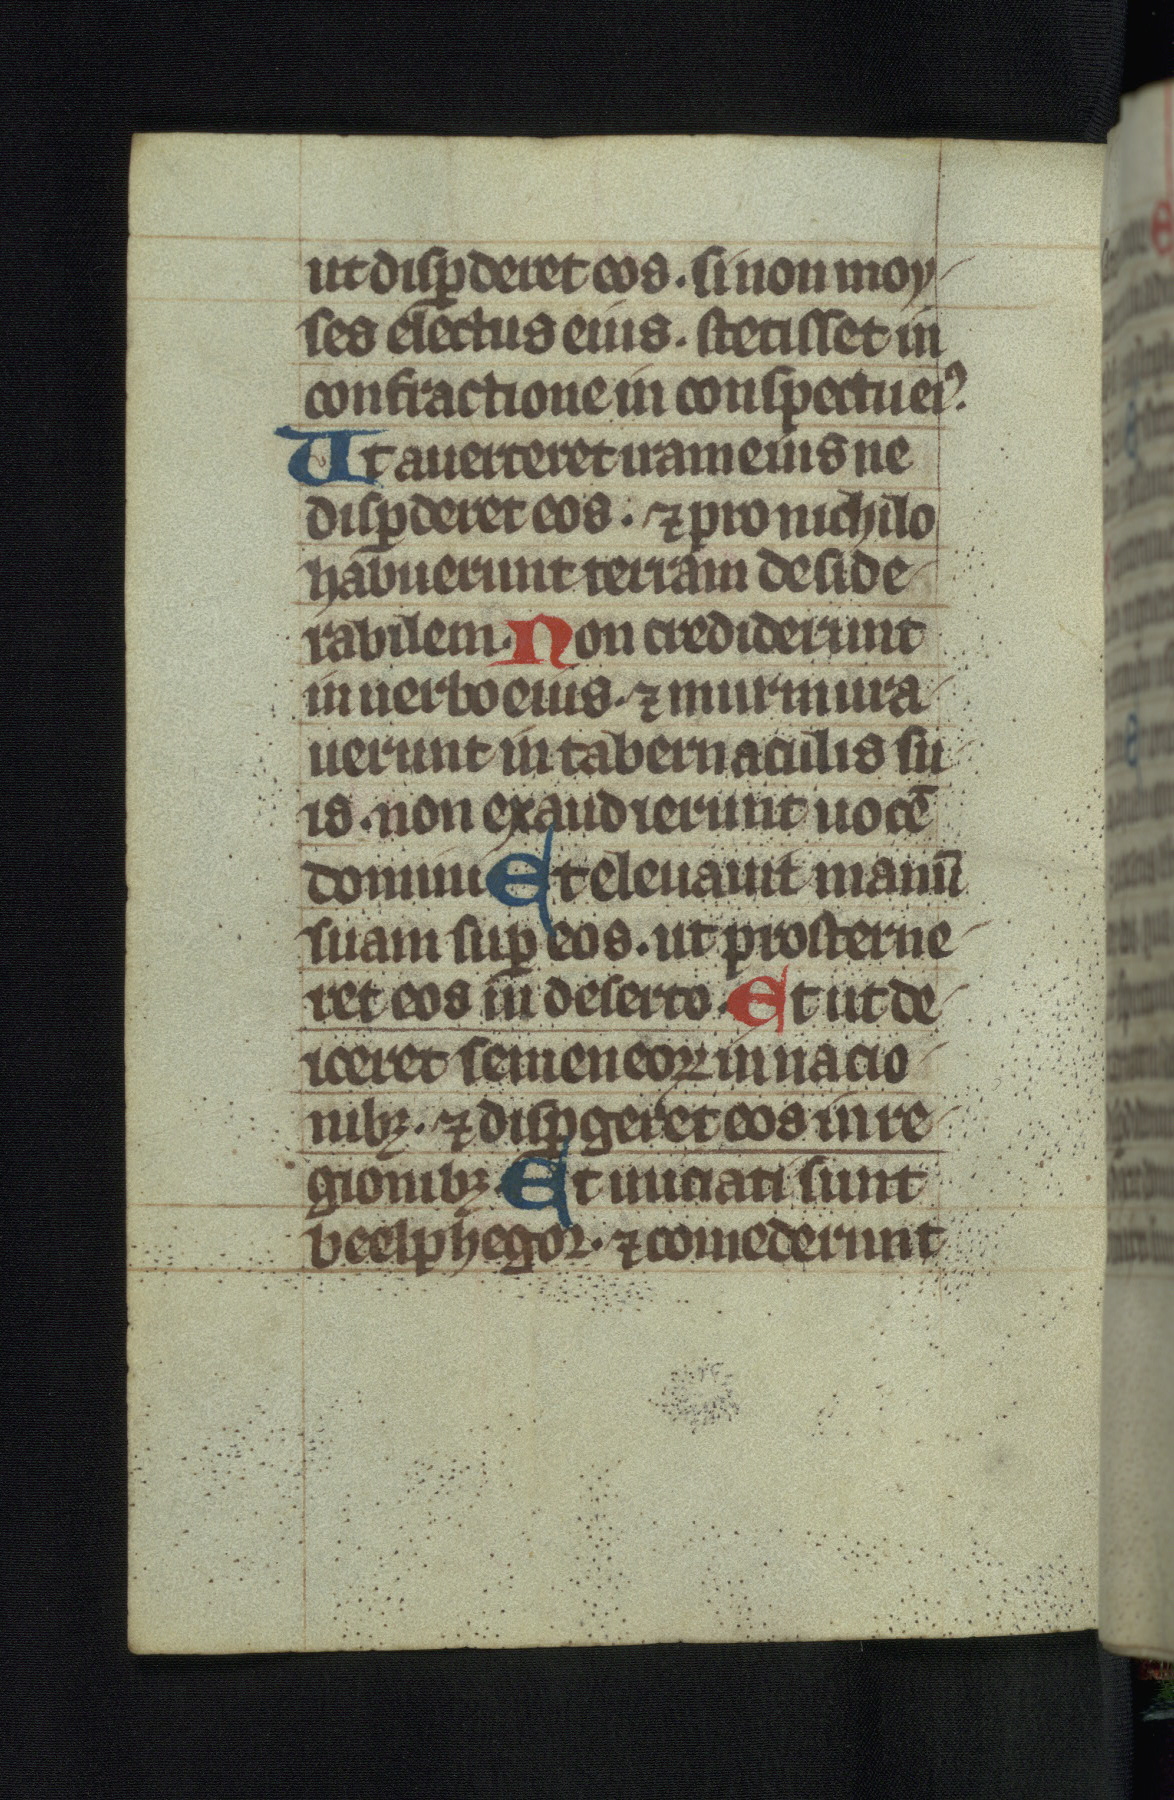 ut disꝑderet eos. si non moy
ses electus eius. stetisset in
confractione in conspectu eiꝰ.
Ut auerteret iram eius ne
disꝑderet eos. ⁊ pro nichilo
habuerunt terram deside
rabilem. Non crediderunt
in uerbo eius. ⁊ murmura
uerunt in tabernaculis su
is. non exaudierunt uocē
domini Et eleuauit manū
suam suꝑ eos. ut prosterne
ret eos in deserto. Et ut de
iceret semen eoꝝ in nacio
nibꝫ. ⁊ disꝑgeret eos in re
gionibꝫ. Et iniciati sunt
beelphegor. ⁊ comederunt